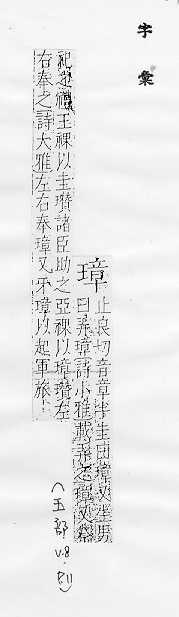 字彙
璋
止良切音章半圭曰璋又生男
曰弄璋詩小雅載弄之璋又祭
祀 王祼以圭瓚諸臣助之亞祼以璋瓚左
右奉之詩大雅左右奉璋又牙璋以起軍旅
(玉部 v.8